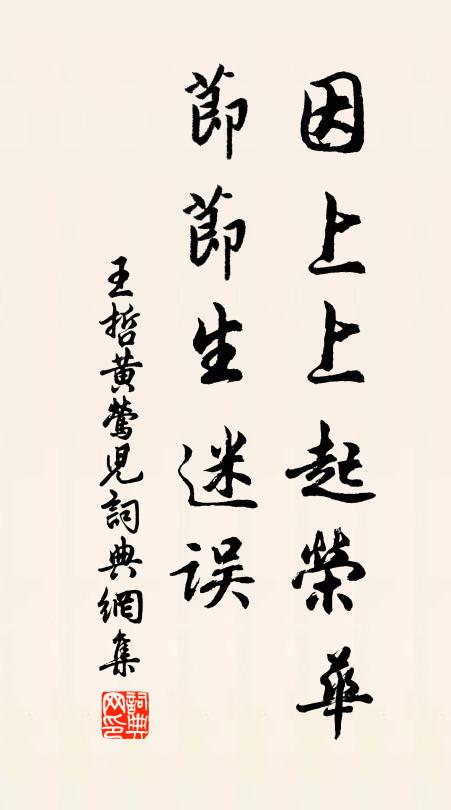 因上上起榮華
節節生迷误
王哲黃鶯児詞典網集
詞典网印